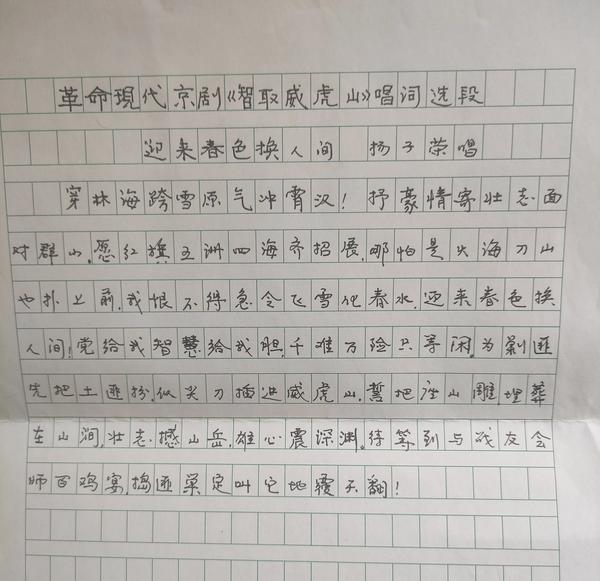 革命现代京剧《智取威虎山》唱词选段
迎来春色换人间 扬子荣唱
穿林海跨雪原气冲霄汉！抒豪情寄壮志面
对群山。愿红旗五洲四海齐招展，哪怕是火海刀山
也扑上前。我恨不得急令飞雪化春水，迎来春色换
人间！党给我智慧给我胆，千难万险只等闲。为剿匪
先把土匪扮，似尖刀插进威虎山。誓把座山雕埋葬
在山涧，壮志撼山岳，雄心震深渊。待等到与战友会
师百鸡宴，捣匪巢定叫它地覆天翻！